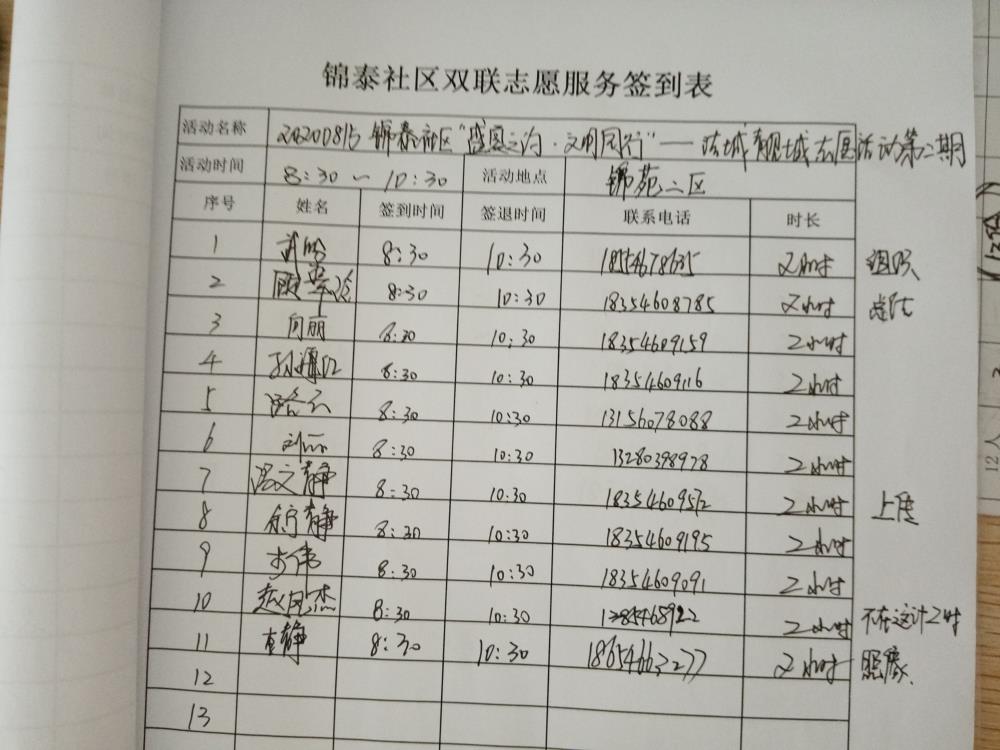 锦泰社区双联志愿服务签到表
活动名称 20200815 锦泰社区"盛国之约·文明同行"——洁城靓城志愿活动第二期
活动时间 8:30~10:30 活动地点 锦苑二区
序号 姓名 签到时间 签退时间 联系电话 时长
1 武 8:30 10:30 18554678635 2小时 组织
2 顾 8:30 10:30 18354608785 2小时 总结
3 向丽 8:30 10:30 18354609159 2小时
4 孙 8:30 10:30 18354609116 2小时
5 8:30 10:30 13156078088 2小时
6 刘丽 8:30 10:30 13280398978 2小时
7 文静 8:30 10:30 2小时 上传
8 徐宁静 8:30 10:30 18354609195 2小时
9 李伟 8:30 10:30 18354609091 2小时
10 赵凤杰 8:30 10:30 2小时 不在这计2时
11 袁静 8:30 10:30 18654663277 2小时 照像、
12
13
12人